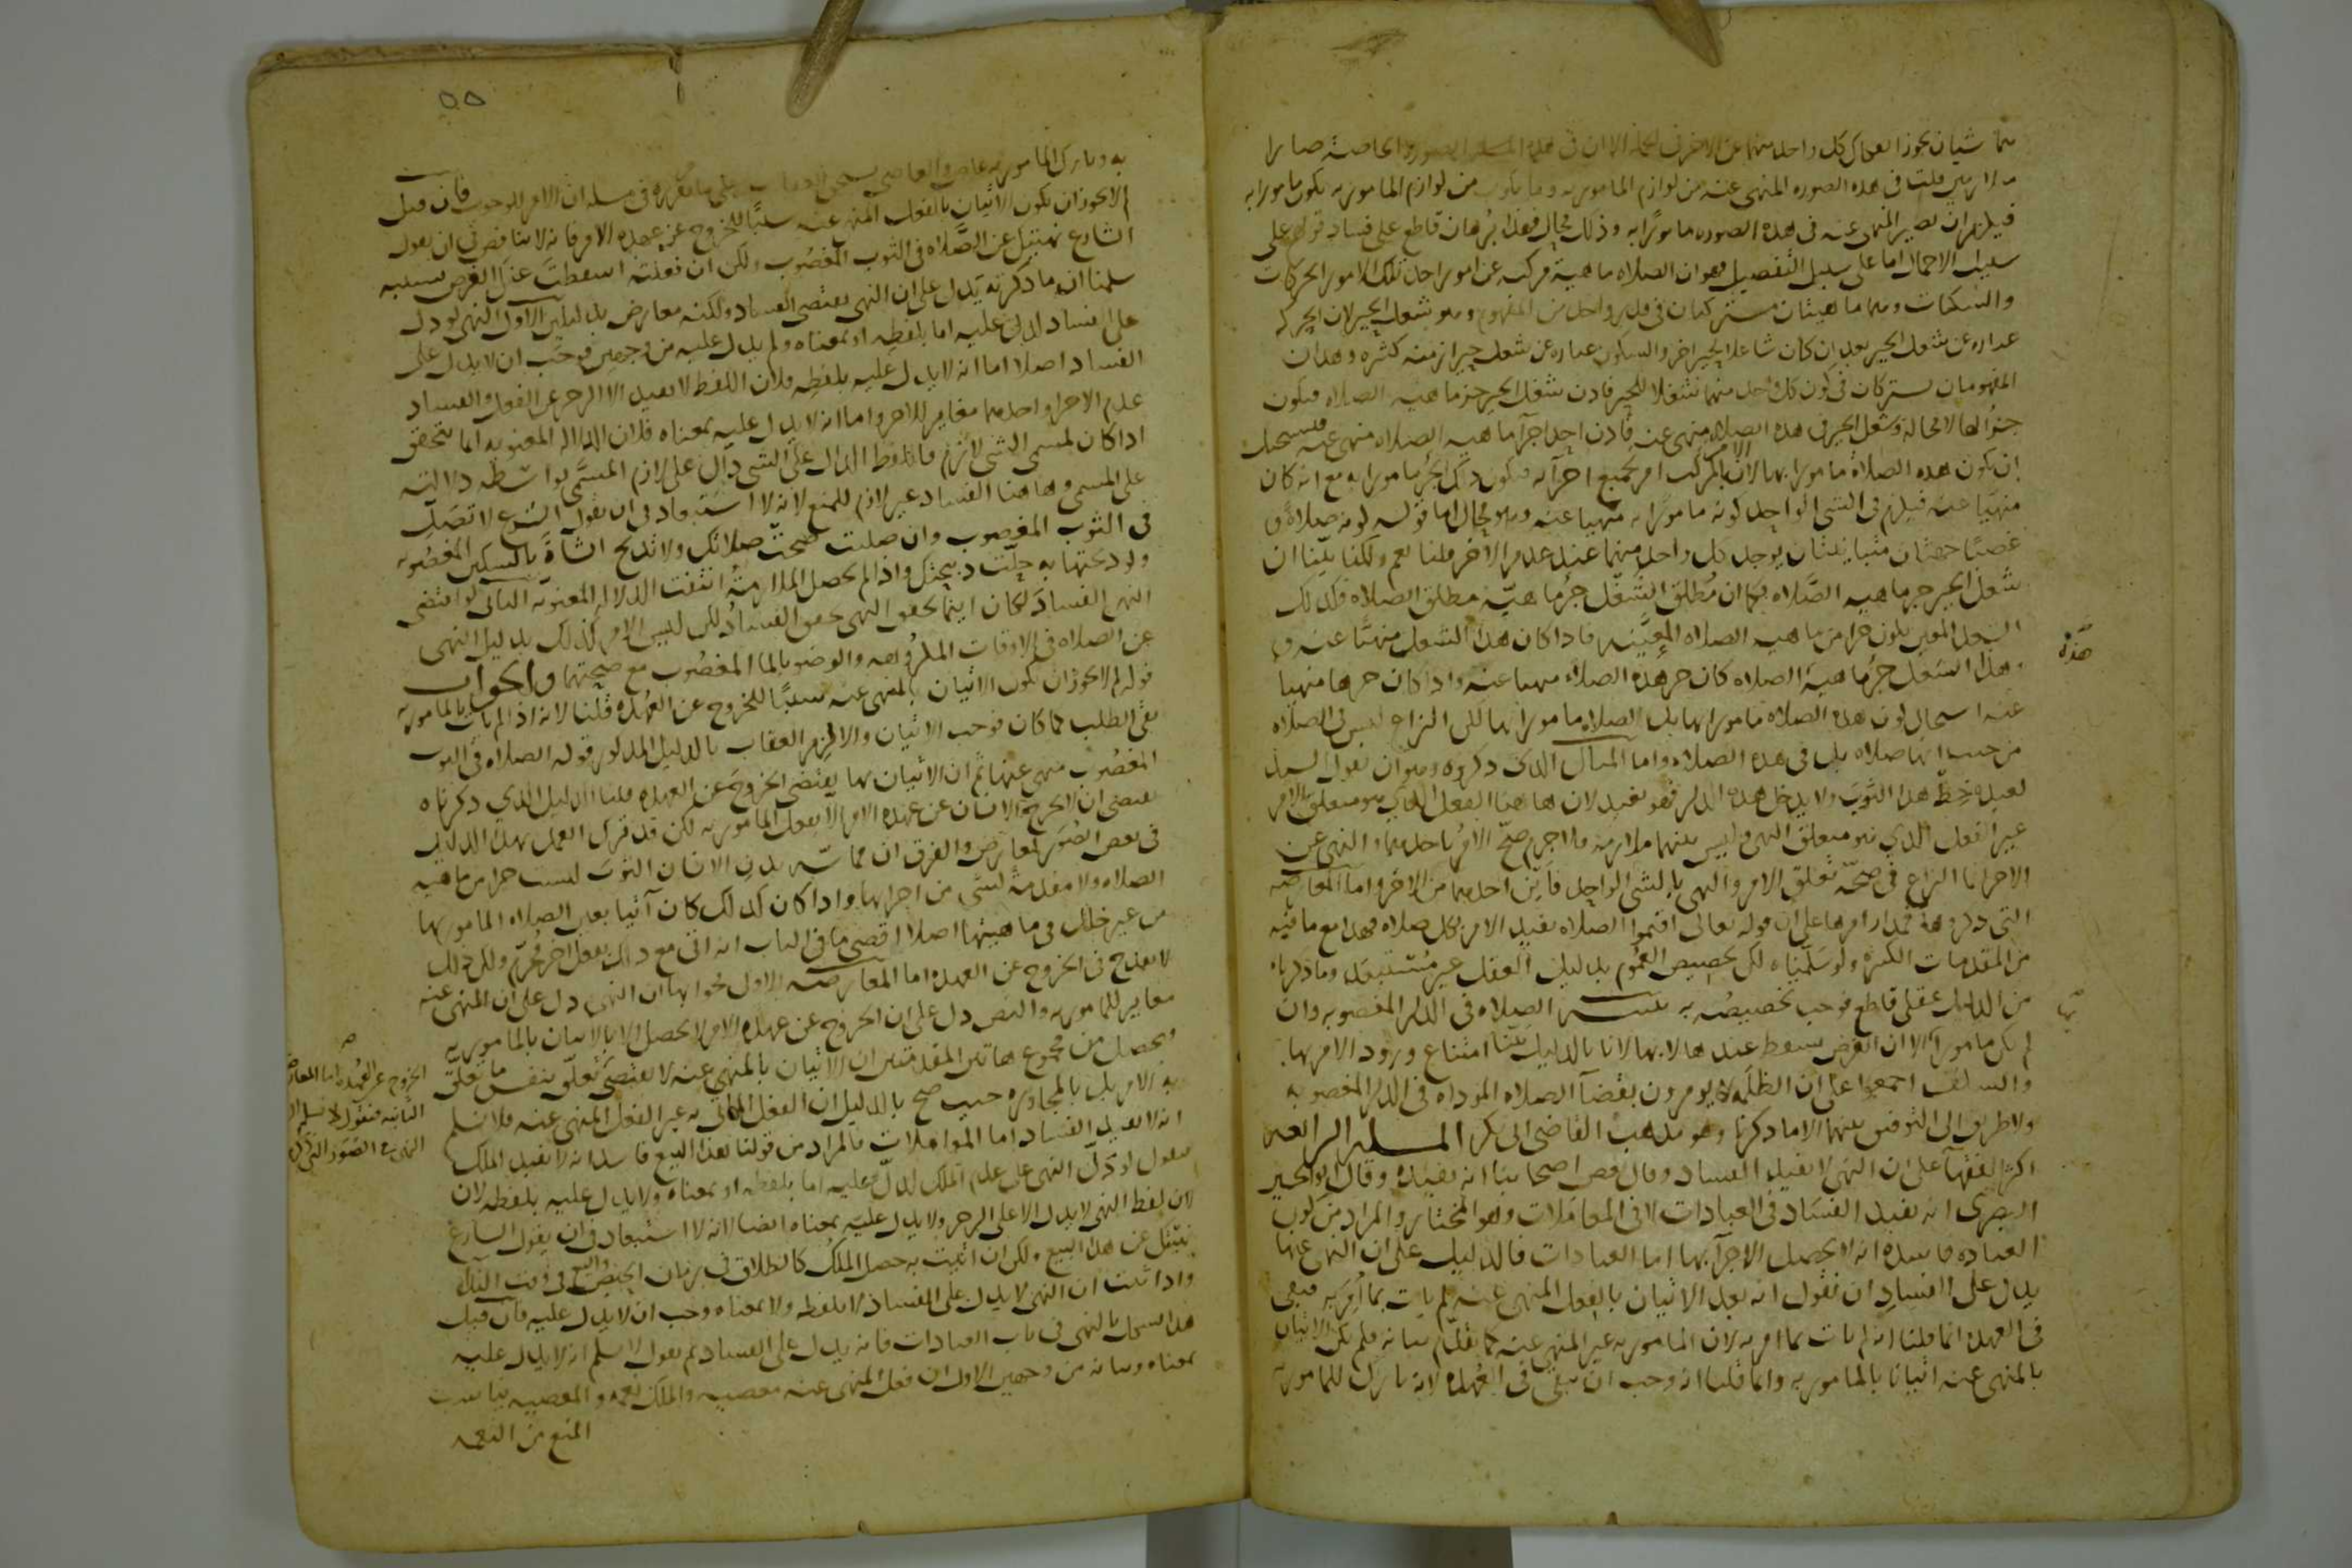 شيان يجوز انفكاك كل واحد منهما عن الاخر فى الجملة الا ان فى هذه المسله الصورة الخاصة صارا
متلازمين قلت فى هذه الصوره المنهى عنه من لوازم المامور به وما يكون من لوازم المامور به يكون مامورا به
فيلزم ان يصير المنهى عنه فى هذه الصوره مامورًا به وذلك محال فهذا برهان قاطع على فساد قولهم على
سبيل الاجمال اما على سبيل التفصيل فهو ان الصلاه ماهية مركبه عن امور احد تلك الامور الحركات
والسكنات وهما ماهيتان مشتركتان فى قدر واحد من المفهوم وهو شغل الحيز لان الحركه
عباره عن شغل الحيز بعد ان كان شاغلا لحيز اخر والسكون عباره عن شغل حيز ازمنه كثيره وهذان
المفهومان يشتركان فى كون كل واحد منهما شغلا للحيز فاذن شغل الحيز جزء ماهيه الصلاه فيكون
جزءًا لها لا محالة وشغل الحيز فى هذه الصلاه منهى عنه فاذن احد اجزآ ماهيه الصلاه منهى عنه فيستحيل
ان يكون هذه الصلاة مامورا بها لان الامر بالمركب امر بجميع اجزآئه فيكون ذلك الجزء مامورا به مع انه كان
منهيا عنه فيلزم فى الشى الواحد كونه مامورًا به منهيا عنه وهو محال اما قوله كونه صلاةً و
غصبًا جهتان متباينتان يوجد كل واحد منهما عند عدم الاخر قلنا نعم ولكنا بينا ان
شغل الحيز جزء ماهيه الصَّلاه فكما ان مُطلق الشغل جزء ماهيّة مطلق الصلاه فكذلك
الشغل المعين يكون جزا من ماهيه الصلاه المعيَّنه فاذا كان هذا الشغل منهيًّا عنه و
هذا الشغل جزء ماهية الصلاه كان جزء هذه الصلاه منهيا عنه واذا كان جزءها منهيا
هذه
عنه استحال كون هذه الصلاه مامورا بها بلى الصلاه مامورا بها لكن النزاع ليس فى الصلاه
من حيث انها صلاه بل فى هذه الصلاه واما المثال الذى ذكروه وهو ان يقول السيد
لعبده خِط هذا الثوبَ ولا يدخل هذه الدار فهو بعيد لان هاهنا الفعل الذي هو متعلق الامر
غير الفعل الذي هو متعلق النهى وليس بينهما ملازمة فلا جرم صحّ الامر باحدهما والنهى عن
الاخر انما النزاع فى صحّة تعلق الامر والنهى بالشى الواحد فاين احدهما من الاخر واما المعارضه
التى ذكروها فمدار امرها على ان قوله تعالى اقيموا الصلاه يفيد الامر بكل صلاه فهذا مع ما فيه
من المقدمات الكثيره ولو سَلّمناه لكن تخصيص العُمُوم بدليل العقل غير مُستبعَد وما ذكرناه
من الدليل عقلى قاطع فوجب تخصيصُه به تنبيه الصلاه فى الدار المغصوبه وان
لم يكن مامورا الا ان الفرض يسقط عندها لا بها لانا بالدليل بيّنا امتناع ورود الامر بها
بها
والسلف اجمعوا على ان الظلَمة لا يومرون بقضآ الصلاه الموداه فى الدار المغصوبه
ولا طريق الى التوفيق بينهما الا ما ذكرنا وهو مذهبُ القاضى ابى بكر المسله الرابعه
اكثر الفقهآ على ان النهى لا يفيد الفساد وقال بعض اصحابنا انه يفيده وقال ابو الحسين
البصرى انه يفيد الفسَاد فى العبادات لا فى المعاملات وهو المختار والمراد من كون
العباده فاسده انه لا يحصل الاجزآ بها اما العبادات فالدليل على ان النهى عنها
يدل على الفسادِ ان نقول انه بعد الاتيان بالفعل المنهى عنه لم يات بما اُمرَ به فيبقى
فى العهده انما قلنا انه لم يات بما امر به لان المامور به غير المنهى عنه كما تقدّم بيانه فلم يكن الاتيان
بالمنهى عنه اتيانا بالمامور به وانما قلنا انه وجب ان يبقى فى العُهده لانه تارك للمامور به
٥٥
به وتارك المامور به عاص والعاصى يستحق العقاب على ما مر تقريره فى مسله ان الامر للوجوب فان قيل
لم لا يجوز ان يكون الاتيان بالفعل المنهى عنه سببًا للخروج عن عهده الامر فانه لا تناقض فى ان يقول
الشارع نهيتك عن الصَّلاه فى الثوب المغصُوب ولكن ان فعلته اسقطتَ عنك الفرض بسببه
سلمنا ان ما ذكرته يدل على ان النهى يقتضى الفساد ولكنه معارض بدليلين الاول النهى لو دل
على الفساد لدل عليه اما بلفظه او بمعناه ولم يدل عليه من وجهين فوجَبَ ان لا يدل على
الفساد اصلا اما انه لا يدل عليه بلفظِهِ فلان اللفظ لا يفيد الا الزجر عن الفعل والفساد
عدم الاجزا واحدهما مغاير للاخر واما انه لا يدل عليه بمعناه فلان الدلاله المعنويه انما يتحقق
اذا كان لمسمى الشى لازم فاللفظ الدال على الشى دالّ على لازم المسمَّى بواسطه دلالته
على المسمى وهاهنا الفساد غير لازم للمنع لانه لا استبعاد فى ان يقول الشرع لا تُصَلّ
فى الثوب المغصوب وان صليت صحتْ صلاتك ولا تذبح الشاةَ بالسكين المغصُوبه
ولو ذبحتها به حلّت ذبيحتك واذا لم يحصل الملازمةُ انتفت الدلاله المعنويه الثانى لو اقتضى
النهى الفسادَ لكان اينما تحقق النهى تحقق الفسادُ لكن ليس الامر كذلك بدليل النهى
عن الصلاه فى الاوقات المكروهه والوضو بالما المغصُوب مع صحتهما والجواب
قوله لم لا يجوز ان يكون الاتيان بالمنهى عنه سببًا للخروج عن العُهده قلنا لانه اذا لم يات بالمامور به
بقى الطلب كما كان فوجب الاتيان والا لزم العقاب بالدليل المذكور قوله الصلاه فى الثوب
المغصُوب منهى عنها ثم ان الاتيان بها يقتضى الخروجَ عن العهده قلنا الدليل الذي ذكرناه
يقتضى ان لا يخرج الانسان عن عهده الامر الا بفعل المامور به لكن قد تُرك العمل بهذا الدليل
فى بعض الصُوَر لمعارض والفرق ان مماسّه بدن الانسان الثوبَ ليست جزا من ماهيه
الصلاه ولا مقدمة لشى من اجزايها واذا كان كذلك كان آتيا بعين الصلاه المامور بها
من غير خلل فى ماهيتها اصلا اقصى ما فى الباب انه اتى مع ذلك بفعل اخر مُحرّم ولكن ذلك
لا يقدح فى الخروج عن العهده اما المعارضه الاول فجوابها ان النهى دل على ان المنهى عنه
مغاير للمامور به والنص دل على ان الخروج عن عهده الامر لا يحصل الا بالاتيان بالمامور به
ويحصل من مجموع هاتين المقدمتين ان الاتيان بالمنهى عنه لا يقتضى تعلّق بنفس ما تعلّق
الخروج عن العُهده اما المعارضه
الثانيه فنقول لا نسلم ان
النهى فى الصُوَر التى ذكر
به الامر بل بالمجاوره حيث صح بالدليل ان الفعل الماتى به غير الفعل المنهى عنه فلا نسلم
انه لا يفيد الفساد اما المعاملات فالمراد من قولنا هذا البيع فاسد انه لا يفيد الملك
فنقول لو دَلّ النهى على عدم الملك لدلّ عليه اما بلفظه او بمعناه ولا يدل عليه بلفظه لان
لان لفظ النهى لا يدل الا على الزجر ولا يدل عليه بمعناه ايضا لانه لا استبعاد فى ان يقول الشارع
نهيتك عن هذا البيع ولكن ان اتيت به حصل الملكُ كالطلاق فى زمان الحيض والبيع فى وقت الندآ
واذا ثبت ان النهى لا يدل على الفساد لا بلفظه ولا بمعناه وجب ان لا يدل عليه فان قيل
هذا يشكل بالنهى فى باب العبادات فانه يدل على الفساد ثم نقول لا نسلم انه لا يدل عليه
بمعناه وبيانه من وجهين الاول ان فعل المنهى عنه معصيه والملك نعمه والمعصيه تناسب
المنع من النعمه